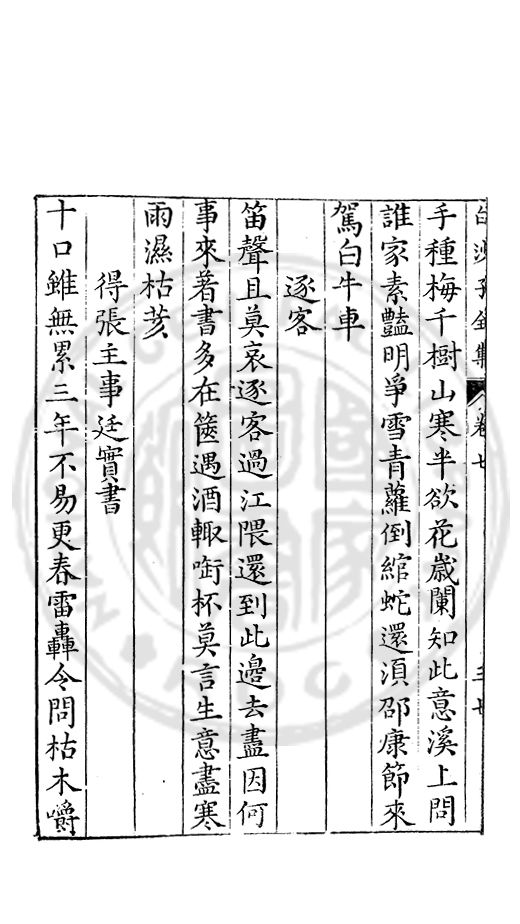 白沙子全集 卷七 三七
手種梅千樹山寒半欲花嵗闌知此意溪上問
誰家素豔明爭雪青蘿倒綰蛇還湏邵康節來
駕白牛車
逐客
笛聲且莫哀逐客過江隈還到此邊去盡因何
事來著書多在篋遇酒輙㗸杯莫言生意盡寒
雨濕枯荄
得張主事廷實書
十口雖無累三年不易更春雷轟令問枯木嚼